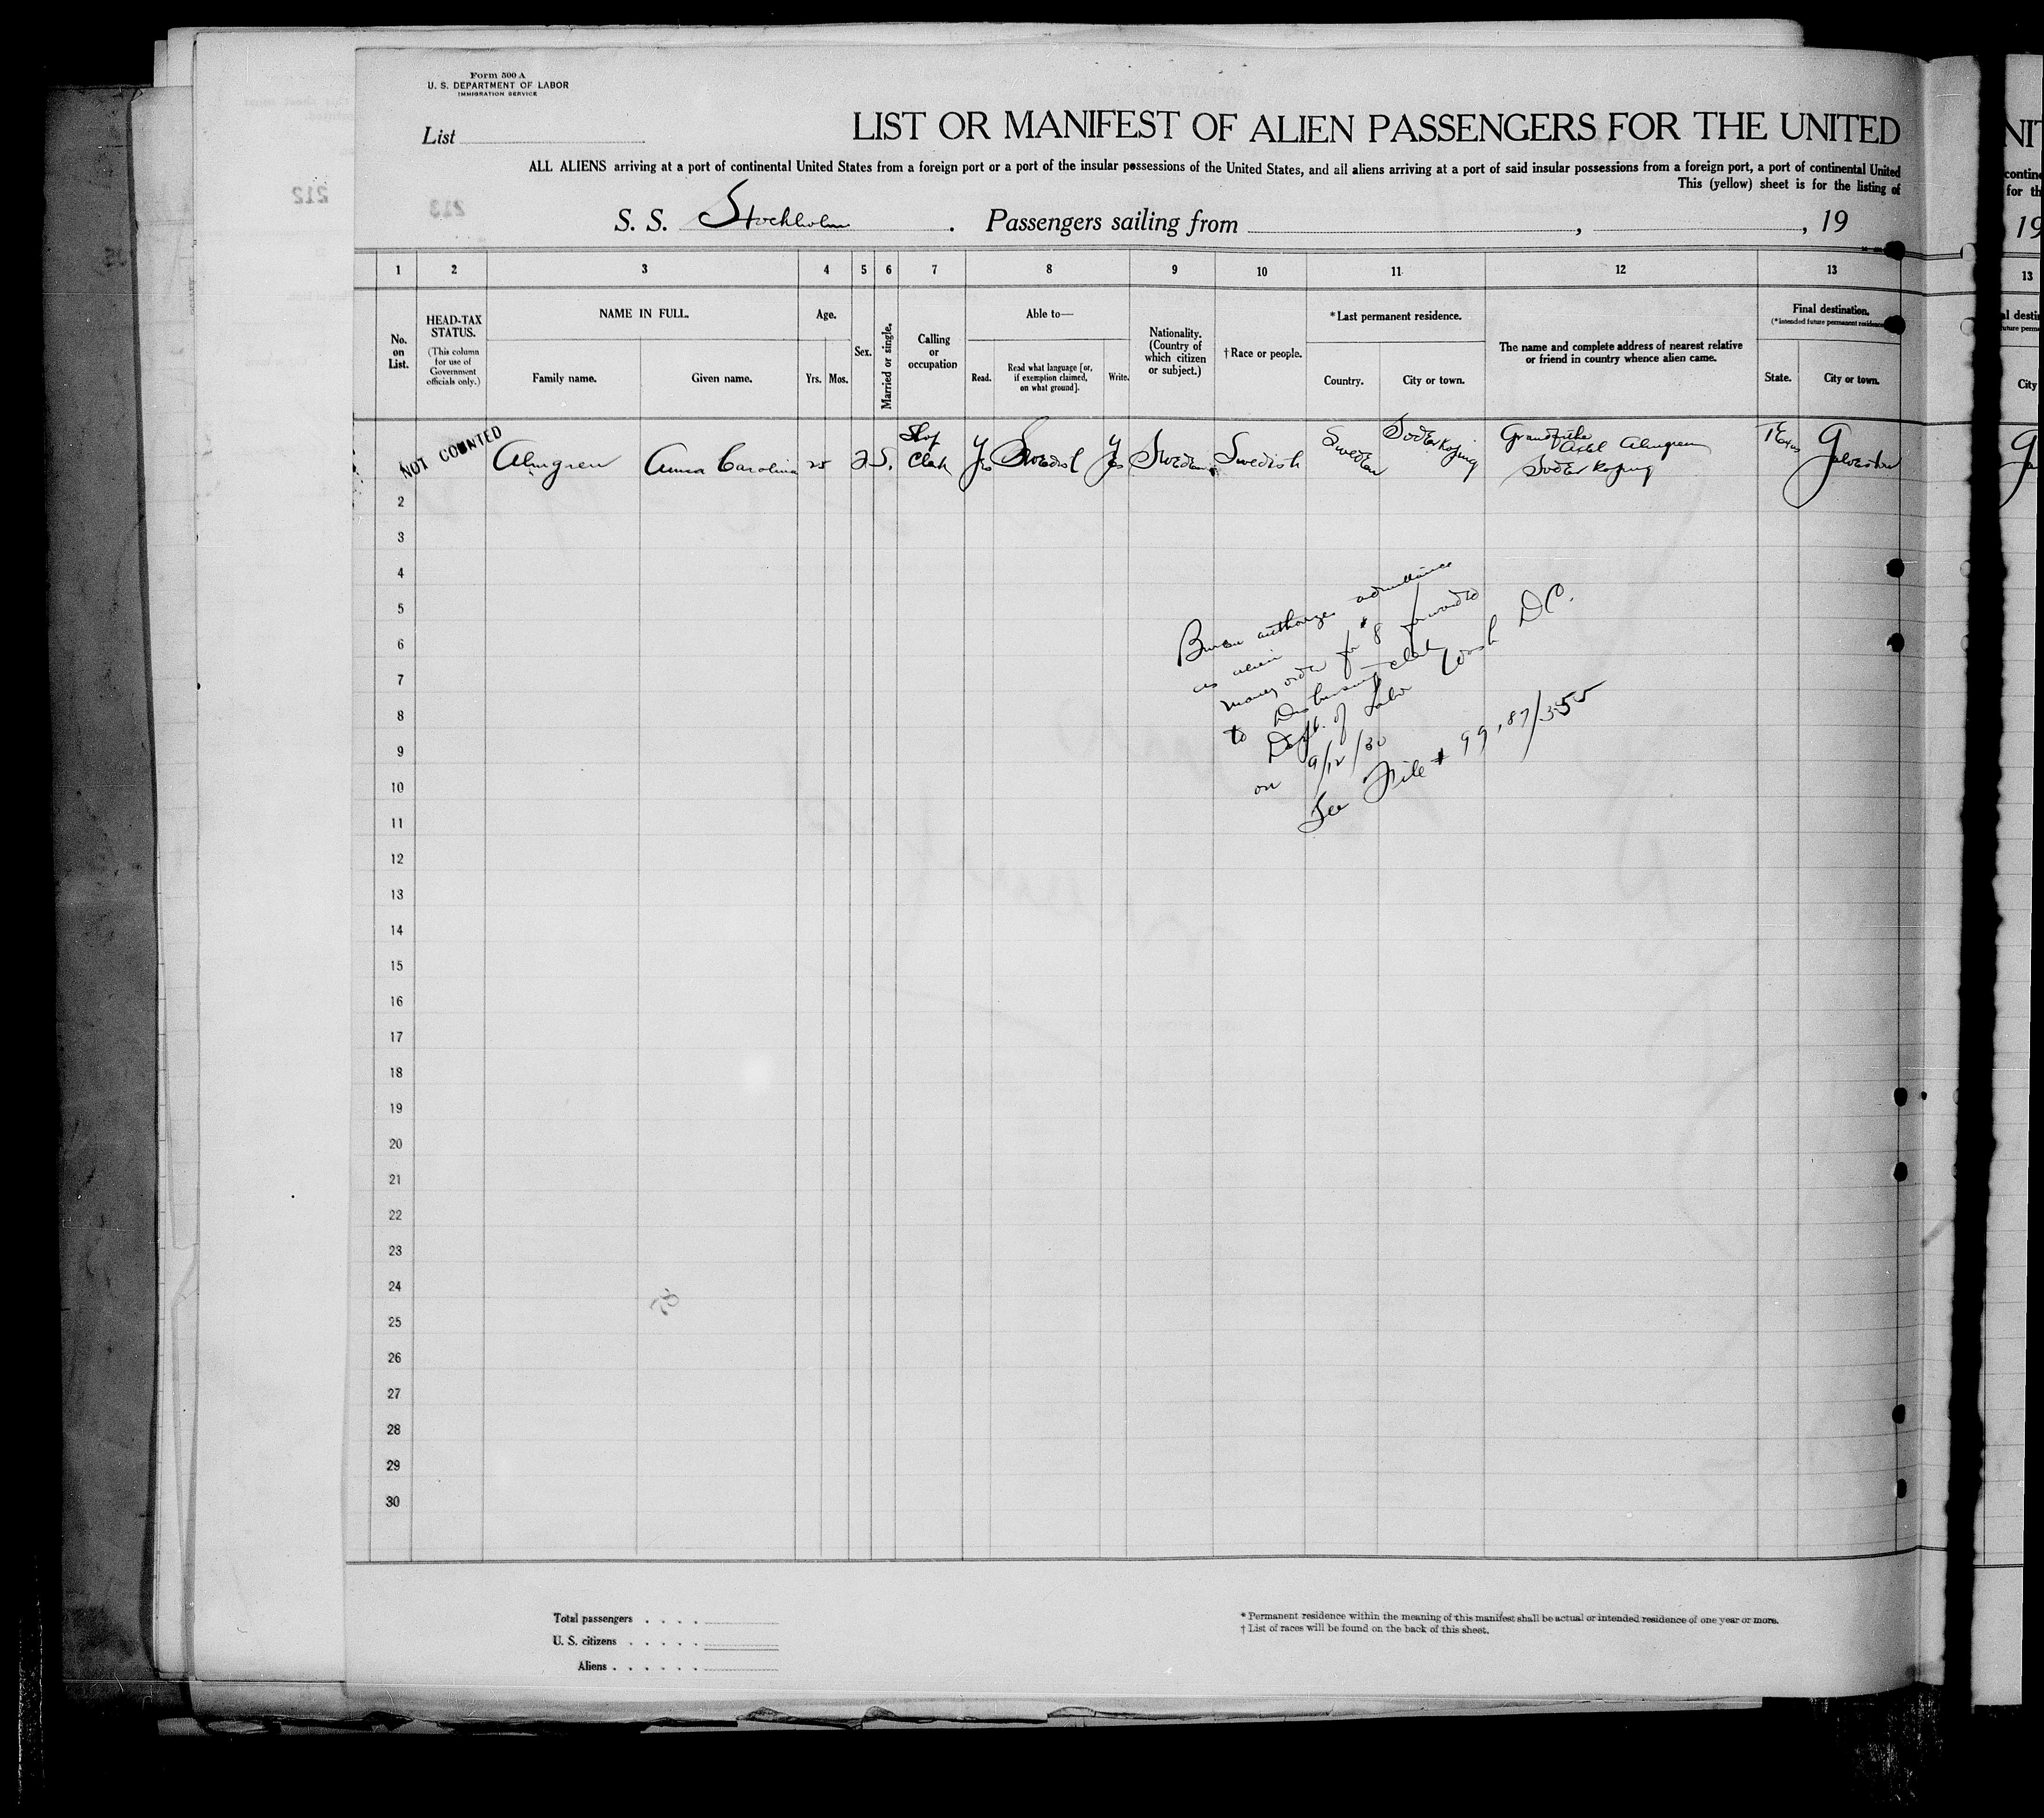 Form 500 A
U. S. DEPARTMENT OF LABOR
IMMIGRATION SERVICE
List
LIST OR MANIFEST OF ALIEN PASSENGERS FOR THE UNITED
ALL ALIENS arriving at a port of continental United States from a foreign port or a port of the insular possessions of the United States, and all aliens arriving at a port of said insular possessions from a foreign port, a port of continental United
This (yellow) sheet is for the listing of
212
213
S. S. Stockholm . Passengers sailing from , , 19
1 2 3 4 5 6 7 8 9 10 11 12 13
No. on List.
HEAD-TAX STATUS.
(This column for use of Government officials only.)
NAME IN FULL.
Family name.
Given name.
Age.
Yrs. Mos.
Sex.
Married or single.
Calling or occupation
Able to—
Read.
Read what language [or, if exemption claimed, on what ground].
Write.
Nationality. (Country of which citizen or subject.)
† Race or people.
* Last permanent residence.
Country.
City or town.
The name and complete address of nearest relative or friend in country whence alien came.
Final destination.
(* intended future permanent residence
State.
City or town.
NOT COUNTED
Almgren Anna Carolina 25 S. Shop Clerk Yes Swedish Yes Sweden Swedish Sweden Soderkoping
Axel Almgren
Soderkoping
Texas Galveston
2
3
4
5
6
7
8
9
10
11
12
13
14
15
16
17
18
19
20
21
22
23
24
25
26
27
28
29
30
Bureau authorizes admittance
as alien
money order for $8 forwarded
to Disbursing clerk
Dept. of Labor Wash D.C.
on 9/12/30
See File # 99,187/355
Total passengers . . . .
U. S. citizens . . . . .
Aliens . . . . . .
* Permanent residence within the meaning of this manifest shall be actual or intended residence of one year or more.
† List of races will be found on the back of this sheet.
NIT
contine
for th
19
13
City